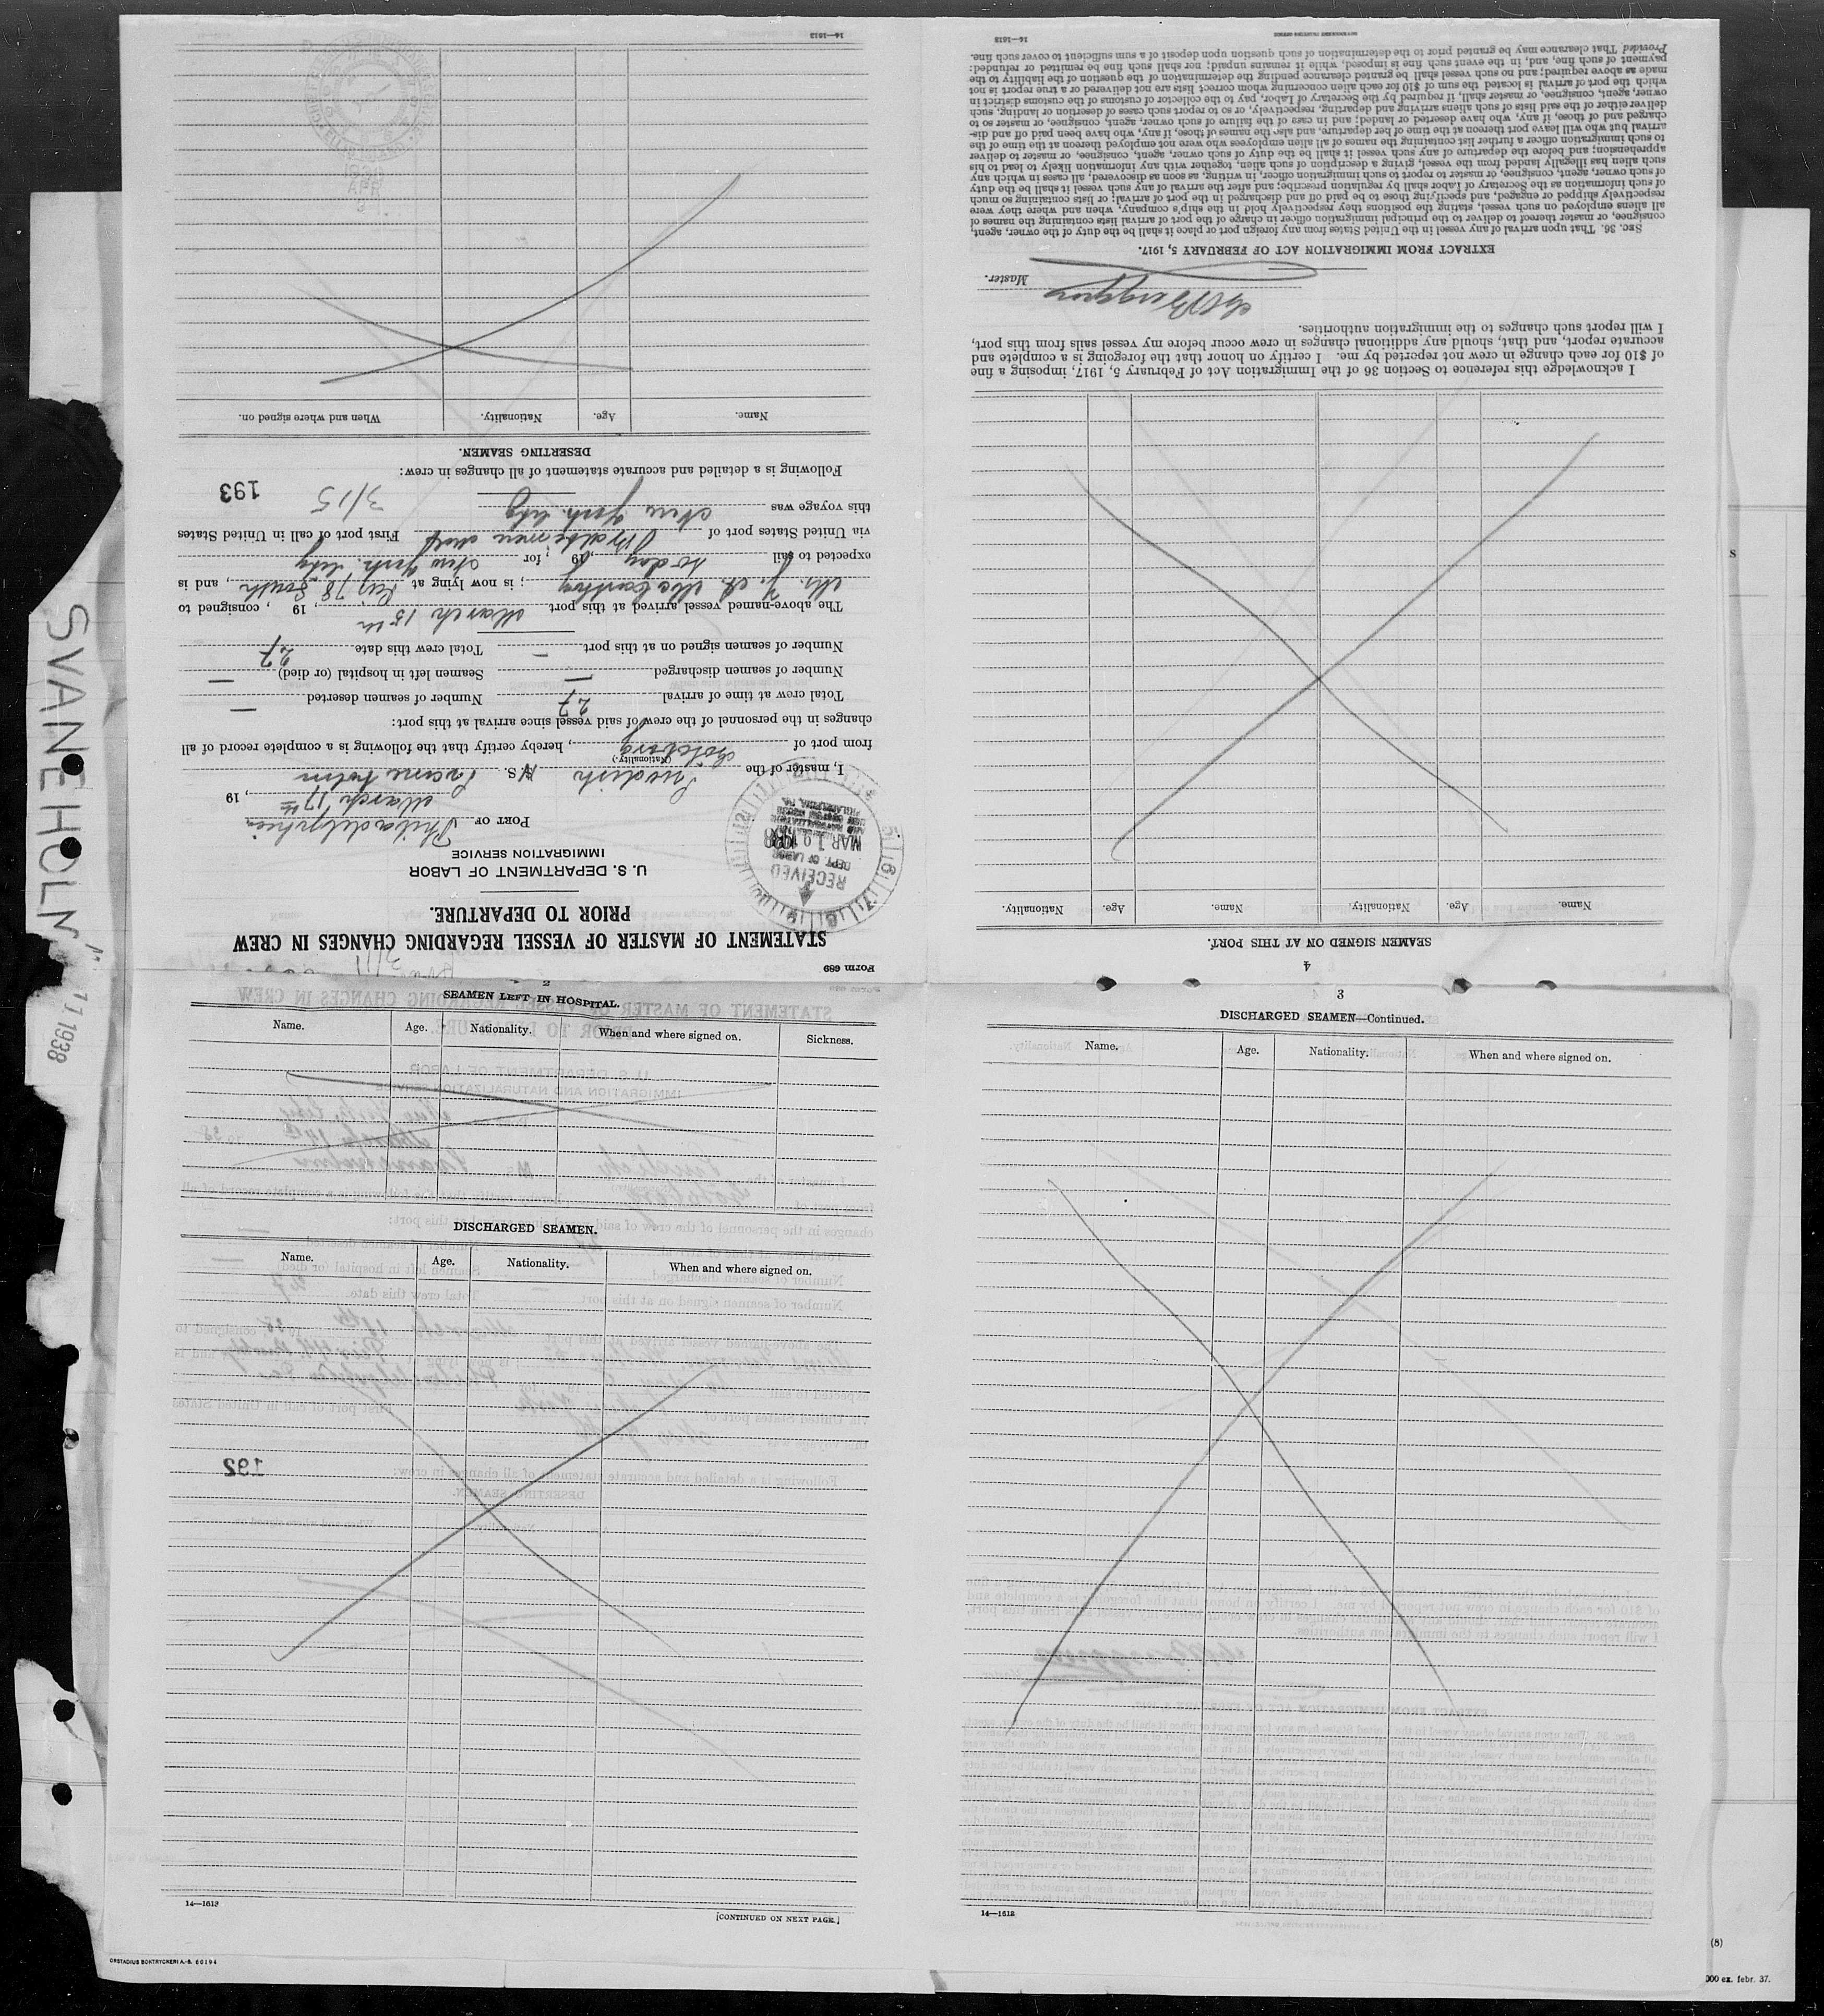 Form 689
STATEMENT OF MASTER OF VESSEL REGARDING CHANGES IN CREW
PRIOR TO DEPARTURE.
U. S. DEPARTMENT OF LABOR
IMMIGRATION SERVICE
RECEIVED
DEPT. OF LABOR
MAR 19 1938
PHILADELPHIA, PA.
PORT OF Philadelphia
March 17th, 19
I, master of the Swedish M/S. Svaneholm
(Nationality.)
from port of Goteborg, hereby certify that the following is a complete record of all
changes in the personnel of the crew of said vessel since arrival at this port:
Total crew at time of arrival 27 Number of seamen deserted —
Number of seamen discharged — Seamen left in hospital (or died) —
Number of seamen signed on at this port — Total crew this date 27
The above-named vessel arrived at this port March 15th, 19 , consigned to
; is now lying at Pier 78 South, and is
expected to sail to day, 19 ; for New York City
via United States port of First port of call in United States
this voyage was New York City 3/15
Following is a detailed and accurate statement of all changes in crew:
193
DESERTING SEAMEN.
Name. Age. Nationality. When and where signed on.
APR
16—1613
2
SEAMEN LEFT IN HOSPITAL.
Name. Age. Nationality. When and where signed on. Sickness.
DISCHARGED SEAMEN.
Name. Age. Nationality. When and where signed on.
192
14—1613
[CONTINUED ON NEXT PAGE.]
3
DISCHARGED SEAMEN—Continued.
Name. Age. Nationality. When and where signed on.
14—1613
4
SEAMEN SIGNED ON AT THIS PORT.
Name. Age. Nationality. Name. Age. Nationality.
I acknowledge this reference to Section 36 of the Immigration Act of February 5, 1917, imposing a fine
of $10 for each change in crew not reported by me. I certify on honor that the foregoing is a complete and
accurate report, and that, should any additional changes in crew occur before my vessel sails from this port,
I will report such changes to the immigration authorities.
Master.
EXTRACT FROM IMMIGRATION ACT OF FEBRUARY 5, 1917.
SEC. 36. That upon arrival of any vessel in the United States from any foreign port or place it shall be the duty of the owner, agent,
consignee, or master thereof to deliver to the principal immigration officer in charge of the port of arrival lists containing the names of
all aliens employed on such vessel, stating the positions they respectively hold in the ship's company, when and where they were
respectively shipped or engaged, and specifying those to be paid off and discharged in the port of arrival; or lists containing so much
of such information as the Secretary of Labor shall by regulation prescribe; and after the arrival of any such vessel it shall be the duty
of such owner, agent, consignee, or master to report to such immigration officer, in writing, as soon as discovered, all cases in which any
such alien has illegally landed from the vessel, giving a description of such alien, together with any information likely to lead to his
apprehension; and before the departure of any such vessel it shall be the duty of such owner, agent, consignee, or master to deliver
to such immigration officer a further list containing the names of all alien employees who were not employed thereon at the time of the
arrival but who will leave port thereon at the time of her departure, and also the names of those, if any, who have been paid off and dis-
charged and of those, if any, who have deserted or landed; and in case of the failure of such owner, agent, consignee, or master so to
deliver either of the said lists of such aliens arriving and departing, respectively, or so to report such cases of desertion or landing, such
owner, agent, consignee, or master shall, if required by the Secretary of Labor, pay to the collector of customs of the customs district in
which the port of arrival is located the sum of $10 for each alien concerning whom correct lists are not delivered or a true report is not
made as above required; and no such vessel shall be granted clearance pending the determination of the question of the liability to the
payment of such fine, and, in the event such fine is imposed, while it remains unpaid; nor shall such fine be remitted or refunded:
Provided That clearance may be granted prior to the determination of such question upon deposit of a sum sufficient to cover such fine.
16—1613
SVANEHOLM"
1938
ORSTADIUS BOKTRYCKERI A.-B. 60194
(8)
000 ex. febr. 37.